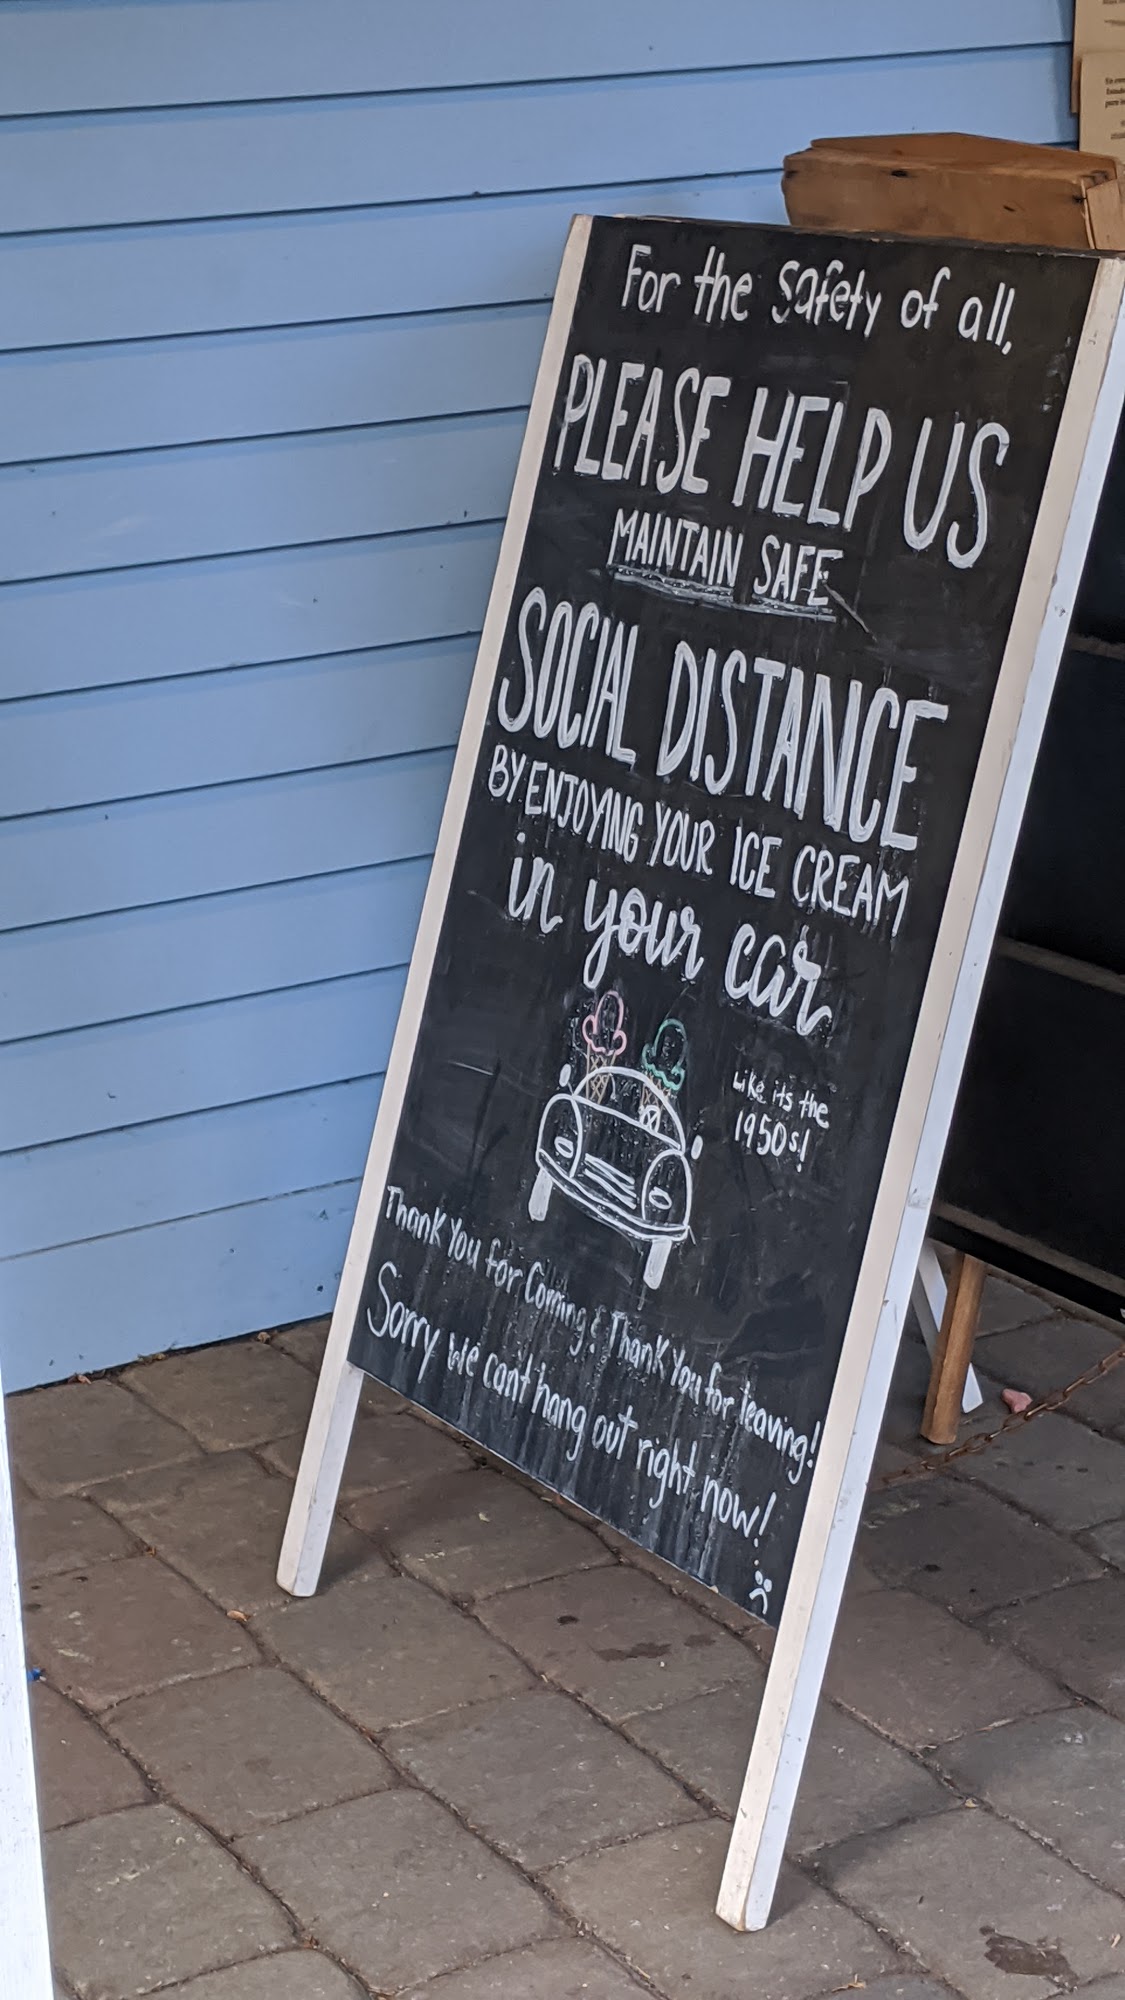 For the safety of all,
PLEASE HELP US
MAINTAIN SAFE
SOCIAL DISTANCE
BY ENJOYING YOUR ICE CREAM
in your car
Like its the
1950s!
Thank You for Coming & Thank You for leaving!
Sorry we can't hang out right now!